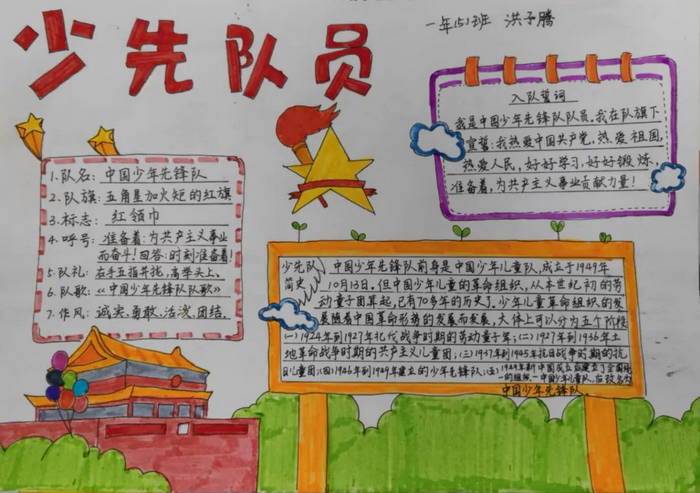 少先队员
一年(5)班 洪子腾
1.队名: 中国少年先锋队
2.队旗: 五角星加火矩的红旗
3.标志: 红领巾
4.呼号: 准备着:为共产主义事业
而奋斗!回答:时刻准备着!
5.队礼: 右手五指并拢,高举头上.
6.队歌:《中国少年先锋队队歌》
7.作风: 诚实、勇敢、活泼、团结.
入队誓词
我是中国少年先锋队队员,我在队旗下
宣誓:我热爱中国共产党,热爱祖国,
热爱人民,好好学习,好好锻炼,
准备着,为共产主义事业贡献力量!
少先队
简史
中国少年先锋队前身是中国少年儿童队,成立于1949年
10月13日.但中国少年儿童的革命组织,从本世纪初的劳
动童子团算起,已有70多年的历史了.少年儿童革命组织的发
展随着中国革命形势的发展而发展,大体上可以分为五个阶段
(一)1924年到1927年北伐战争时期的劳动童子军;(二)1927年到1936年土
地革命战争时期的共产主义儿童团;(三)1937年到1945年抗日战争时期的抗
日儿童团;(四)1946年到1949年建立的少年先锋队;(五)1949年新中国成立后建立了全国统
一的组织—中国少年儿童队,后改名为
中国少年先锋队.